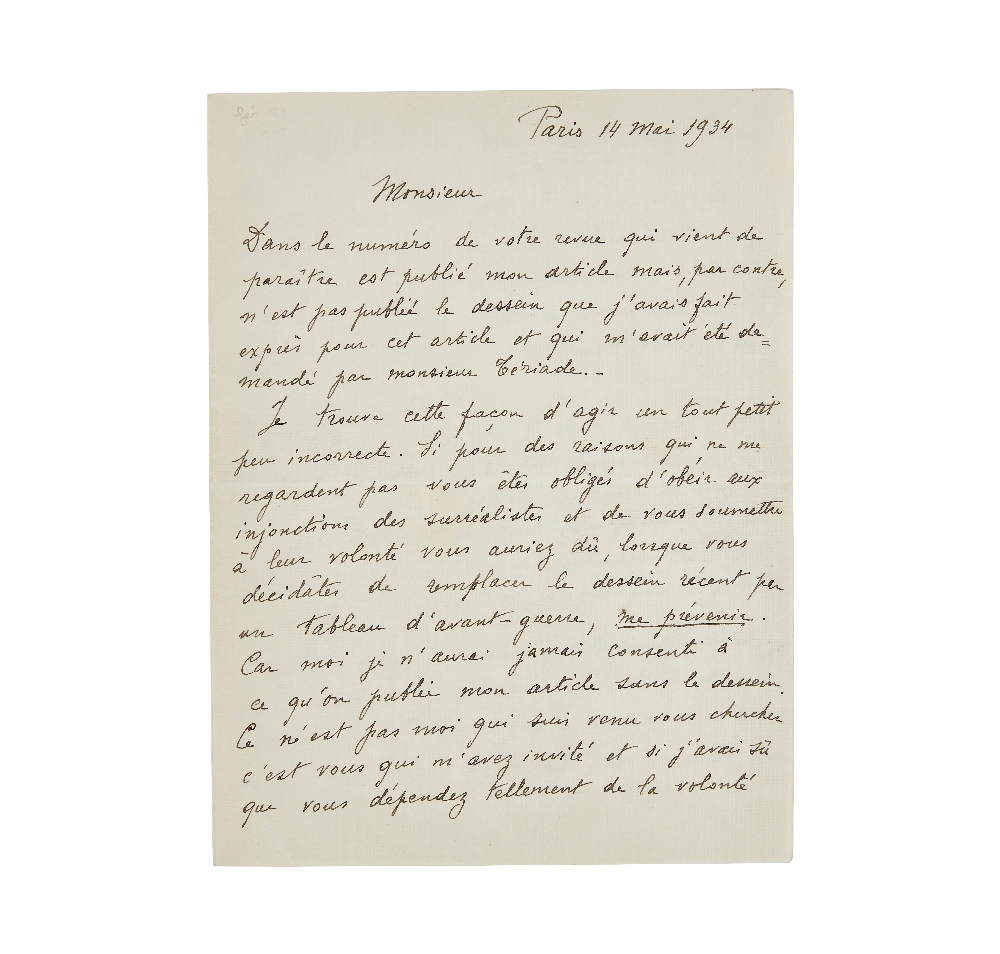 Paris 14 Mai 1934
Monsieur
Dans le numéro de votre revue qui vient de
paraître est publié mon article mais, par contre,
n'est pas publié le dessein que j'avais fait
exprès pour cet article et qui m'avait été de=
mandé par monsieur Tériade. -
Je trouve cette façon d'agir un tout petit
peu incorrecte. Si pour des raisons qui ne me
regardent pas vous êtes obligés d'obéir aux
injonctions des surréalistes et de vous soumettre
à leur volonté vous auriez dû, lorsque vous
décidâtes de remplacer le dessein récent par
un tableau d'avant-guerre, me prévenir.
Car moi je n'aurai jamais consenti à
ce qu'on publie mon article sans le dessein.
Ce n'est pas moi qui suis venu vous chercher
c'est vous qui m'avez invité et si j'avais sû
que vous dépendez tellement de la volonté